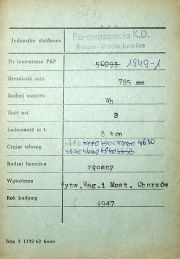 Jednostka służbowa Parowozownia K.D.
Bytom-Maciejkowice
Nr inwentarza PKP 50293 1949-1
Szerokość toru 785 mm
Rodzaj wagonu Wh
Ilość osi 2
Ładowność w t 8 ton
Ciężar własny 4630
Rodzaj hamulca ręczny
Wytwórnia Wytw. Wag. i Most. Chorzów
Rok budowy 1947